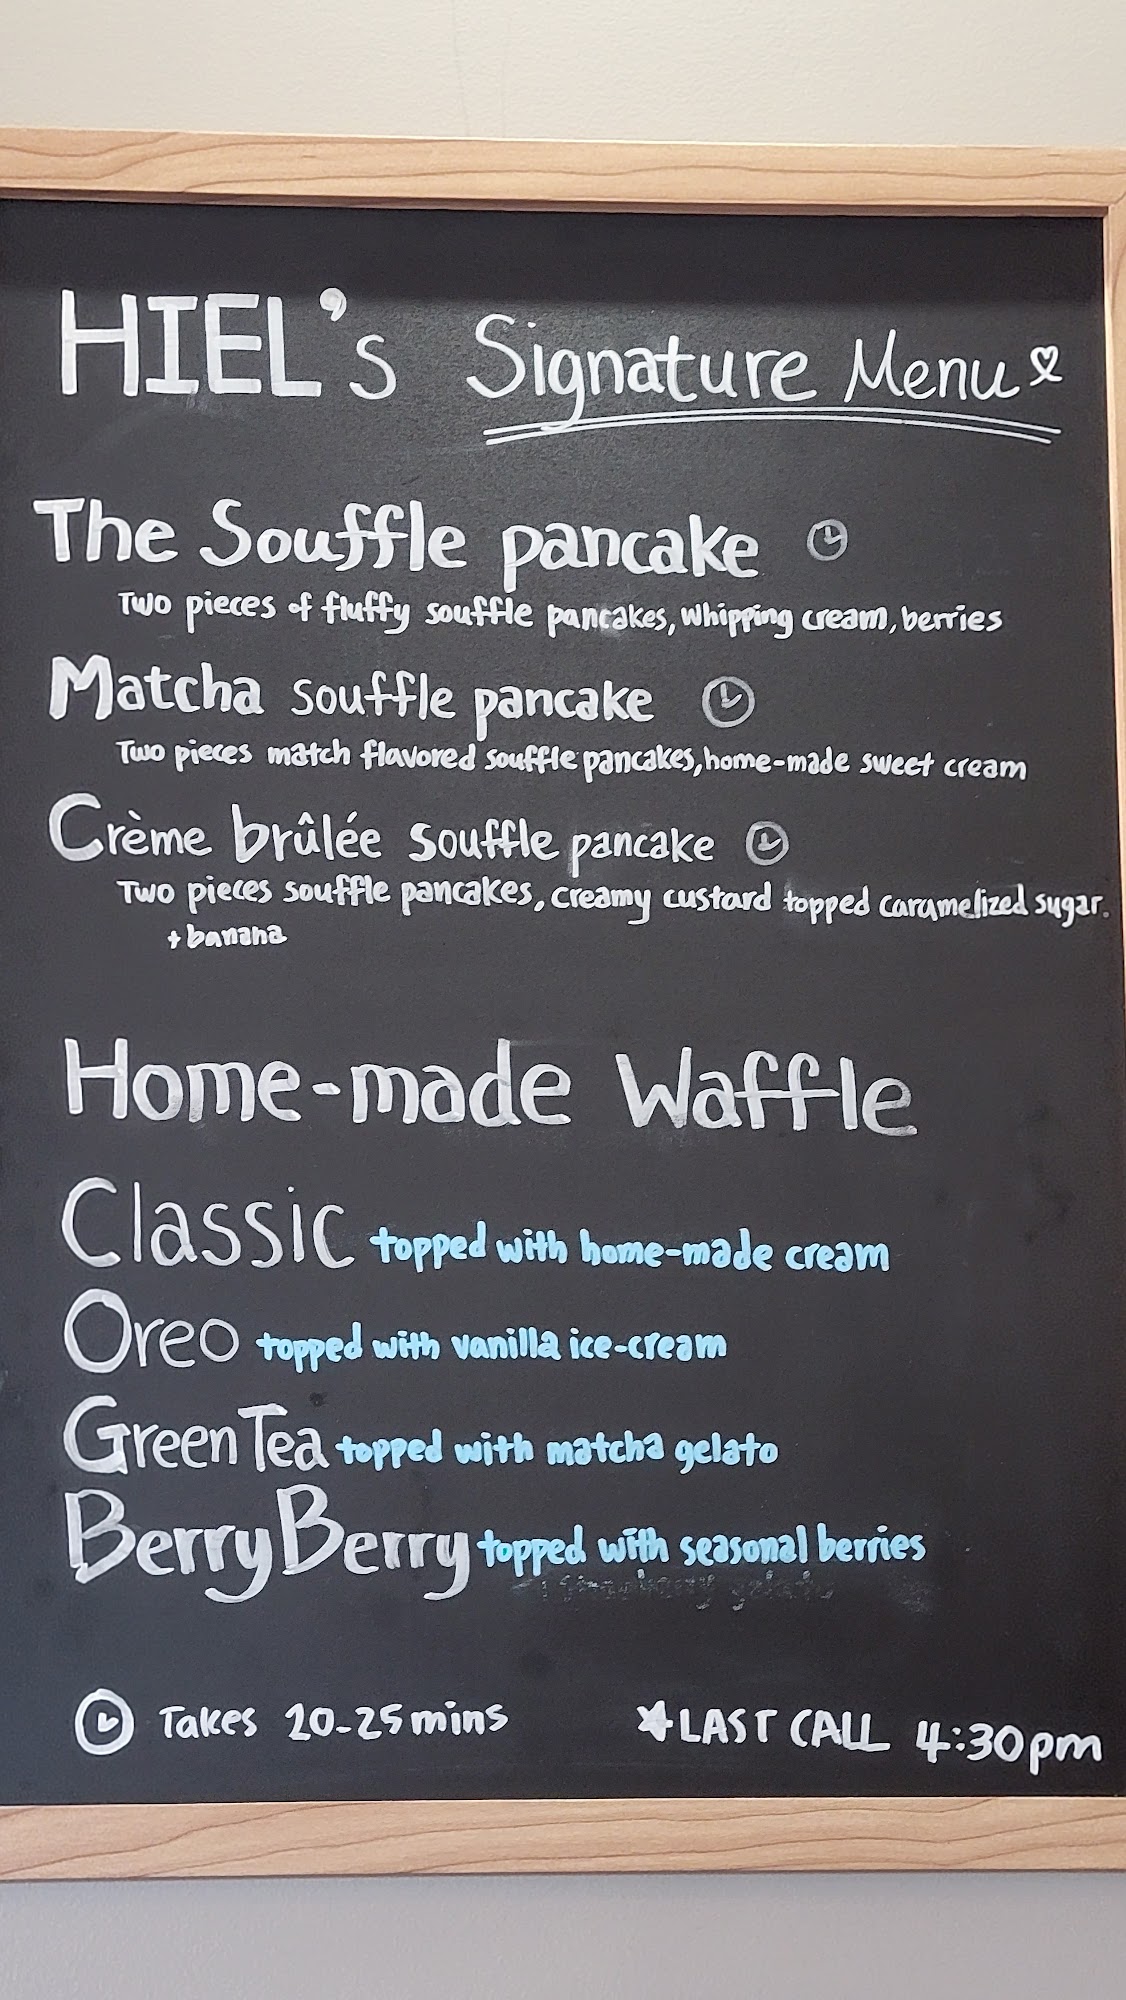 HIEL's Signature Menu
The Souffle pancake
Two pieces of fluffy souffle pancakes, whipping cream, berries
Matcha souffle pancake
Two pieces match flavored souffle pancakes, home-made sweet cream
Crème brûlée souffle pancake
Two pieces souffle pancakes, creamy custard topped caramelized sugar.
+ banana
Home-made Waffle
Classic topped with home-made cream
Oreo topped with vanilla ice-cream
Green Tea topped with matcha gelato
Berry Berry topped with seasonal berries
Takes 20-25 mins
LAST CALL 4:30pm